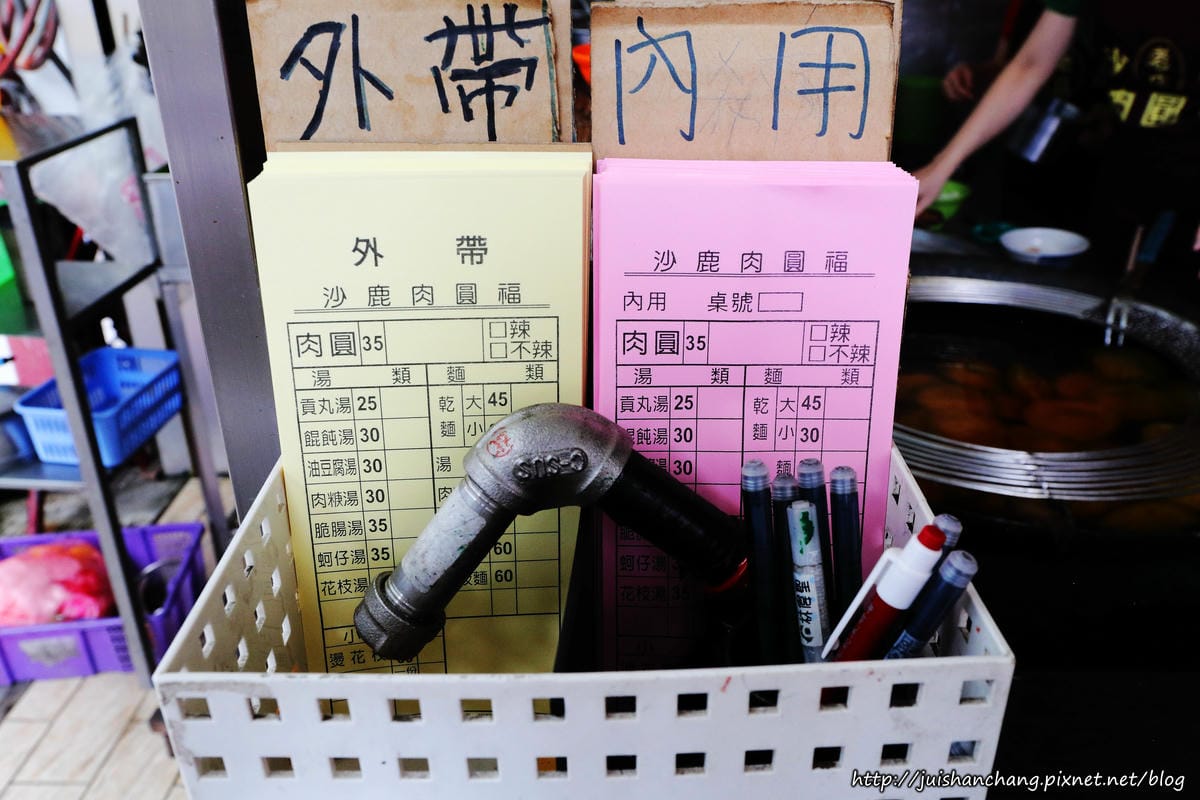 外帶
內用
外 帶
沙鹿肉圓福
肉圓 35 □辣
□不辣
湯類 麵類
貢丸湯 25 乾麵 大 45
餛飩湯 30 小
油豆腐湯 30 湯
肉焿湯 30 肉
脆腸湯 35
蚵仔湯 35 60
花枝湯 麵 60
小
燙花枝
沙鹿肉圓福
內用 桌號
肉圓 35 □辣
□不辣
湯類 麵類
貢丸湯 25 乾麵 大 45
餛飩湯 30 小 30
30
花枝湯
SUS
肉圓
http://juishanchang.pixnet.net/blog